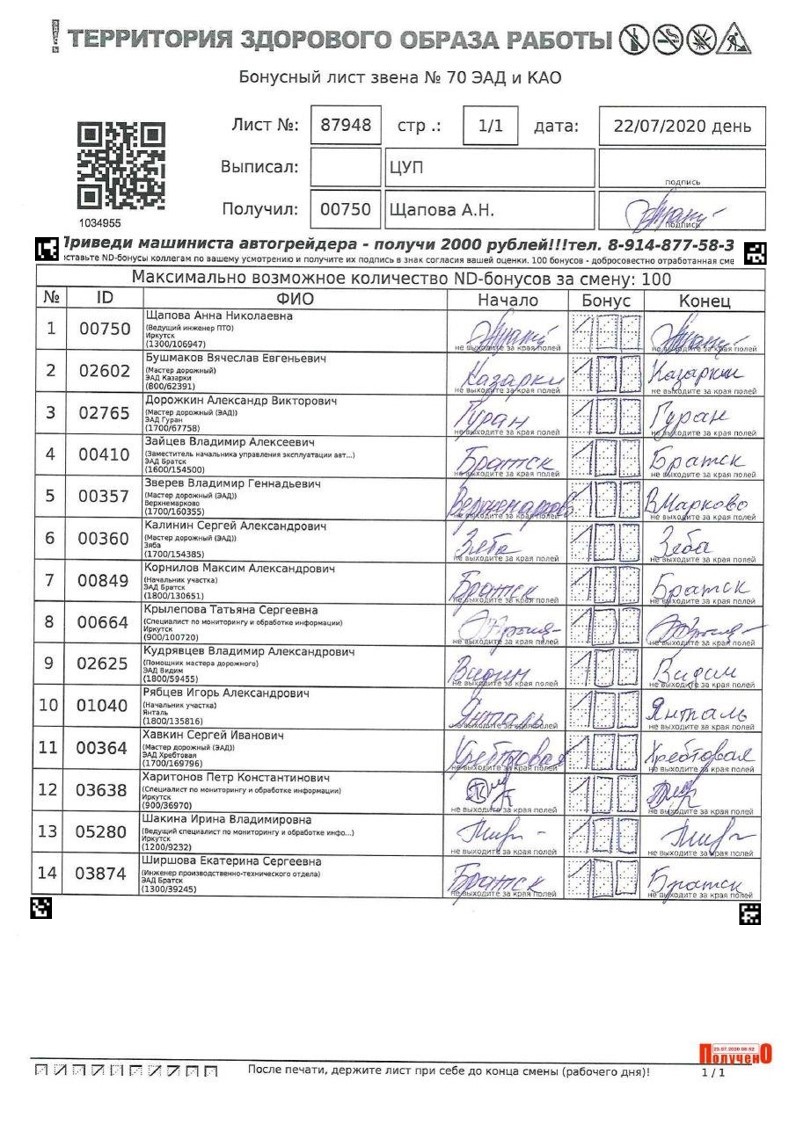 ТЕРРИТОРИЯ ЗДОРОВОГО ОБРАЗА РАБОТЫ
Бонусный лист звена № 70 ЭАД и КАО
Лист №: 87948 стр .: 1/1 дата: 22/07/2020 день
Выписал: ЦУП
подпись
Получил: 00750 Щапова А.Н.
подпись
1034955
Приведи машиниста автогрейдера - получи 2000 рублей!!!тел. 8-914-877-58-3
оставьте ND-бонусы коллегам по вашему усмотрению и получите их подпись в знак согласия вашей оценки. 100 бонусов - добросовестно отработанная сме
Максимально возможное количество ND-бонусов за смену: 100
№ ID ФИО Начало Бонус Конец
1 00750 Щапова Анна Николаевна 100
(Ведущий инженер ПТО)
Иркутск
(1300/106947) не выходите за края полей не выходите за края полей
2 02602 Бушмаков Вячеслав Евгеньевич Казарки 100 Казарки
(Мастер дорожный)
ЭАД Казарки
(800/62391) не выходите за края полей не выходите за края полей
3 02765 Дорожкин Александр Викторович Гуран 100 Гуран
(Мастер дорожный (ЭАД))
ЭАД Гуран
(1700/67758) не выходите за края полей не выходите за края полей
4 00410 Зайцев Владимир Алексеевич Братск 100 Братск
(Заместитель начальника управления эксплуатации авт...)
ЭАД Братск
(1600/154500) не выходите за края полей не выходите за края полей
5 00357 Зверев Владимир Геннадьевич 100 ВМарково
(Мастер дорожный (ЭАД))
Верхнемарково
(1700/160355) не выходите за края полей не выходите за края полей
6 00360 Калинин Сергей Александрович Зеба 100 Зеба
(Мастер дорожный (ЭАД))
Зяба
(1700/154385) не выходите за края полей не выходите за края полей
7 00849 Корнилов Максим Александрович Братск 100 Братск
(Начальник участка)
ЭАД Братск
(1800/130651) не выходите за края полей не выходите за края полей
8 00664 Крылепова Татьяна Сергеевна 100
(Специалист по мониторингу и обработке информации)
Иркутск
(900/100720) не выходите за края полей не выходите за края полей
9 02625 Кудрявцев Владимир Александрович Видим 100 Видим
(Помощник мастера дорожного)
ЭАД Видим
(1800/59455) не выходите за края полей не выходите за края полей
10 01040 Рябцев Игорь Александрович Янталь 100 Янталь
(Начальник участка)
Янталь
(1800/135816) не выходите за края полей не выходите за края полей
11 00364 Хавкин Сергей Иванович Хребтовая 100 Хребтовая
(Мастер дорожный (ЭАД))
ЭАД Хребтовая
(1700/169796) не выходите за края полей не выходите за края полей
12 03638 Харитонов Петр Константинович 100
(Специалист по мониторингу и обработке информации)
Иркутск
(900/36970) не выходите за края полей не выходите за края полей
13 05280 Шакина Ирина Владимировна 100
(Ведущий специалист по мониторингу и обработке инфо...)
Иркутск
(1200/9232) не выходите за края полей не выходите за края полей
14 03874 Ширшова Екатерина Сергеевна Братск 100 Братск
(Инженер производственно-технического отдела)
ЭАД Братск
(1300/39245) не выходите за края полей не выходите за края полей
После печати, держите лист при себе до конца смены (рабочего дня)!
ПолученО
1 / 1